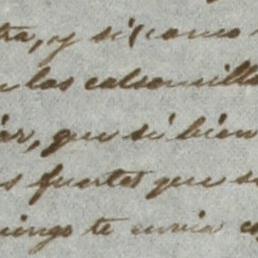 tra, y si (como
n los calsonsillo
ar, que si bien
s fuertes que s
ingo te envia c